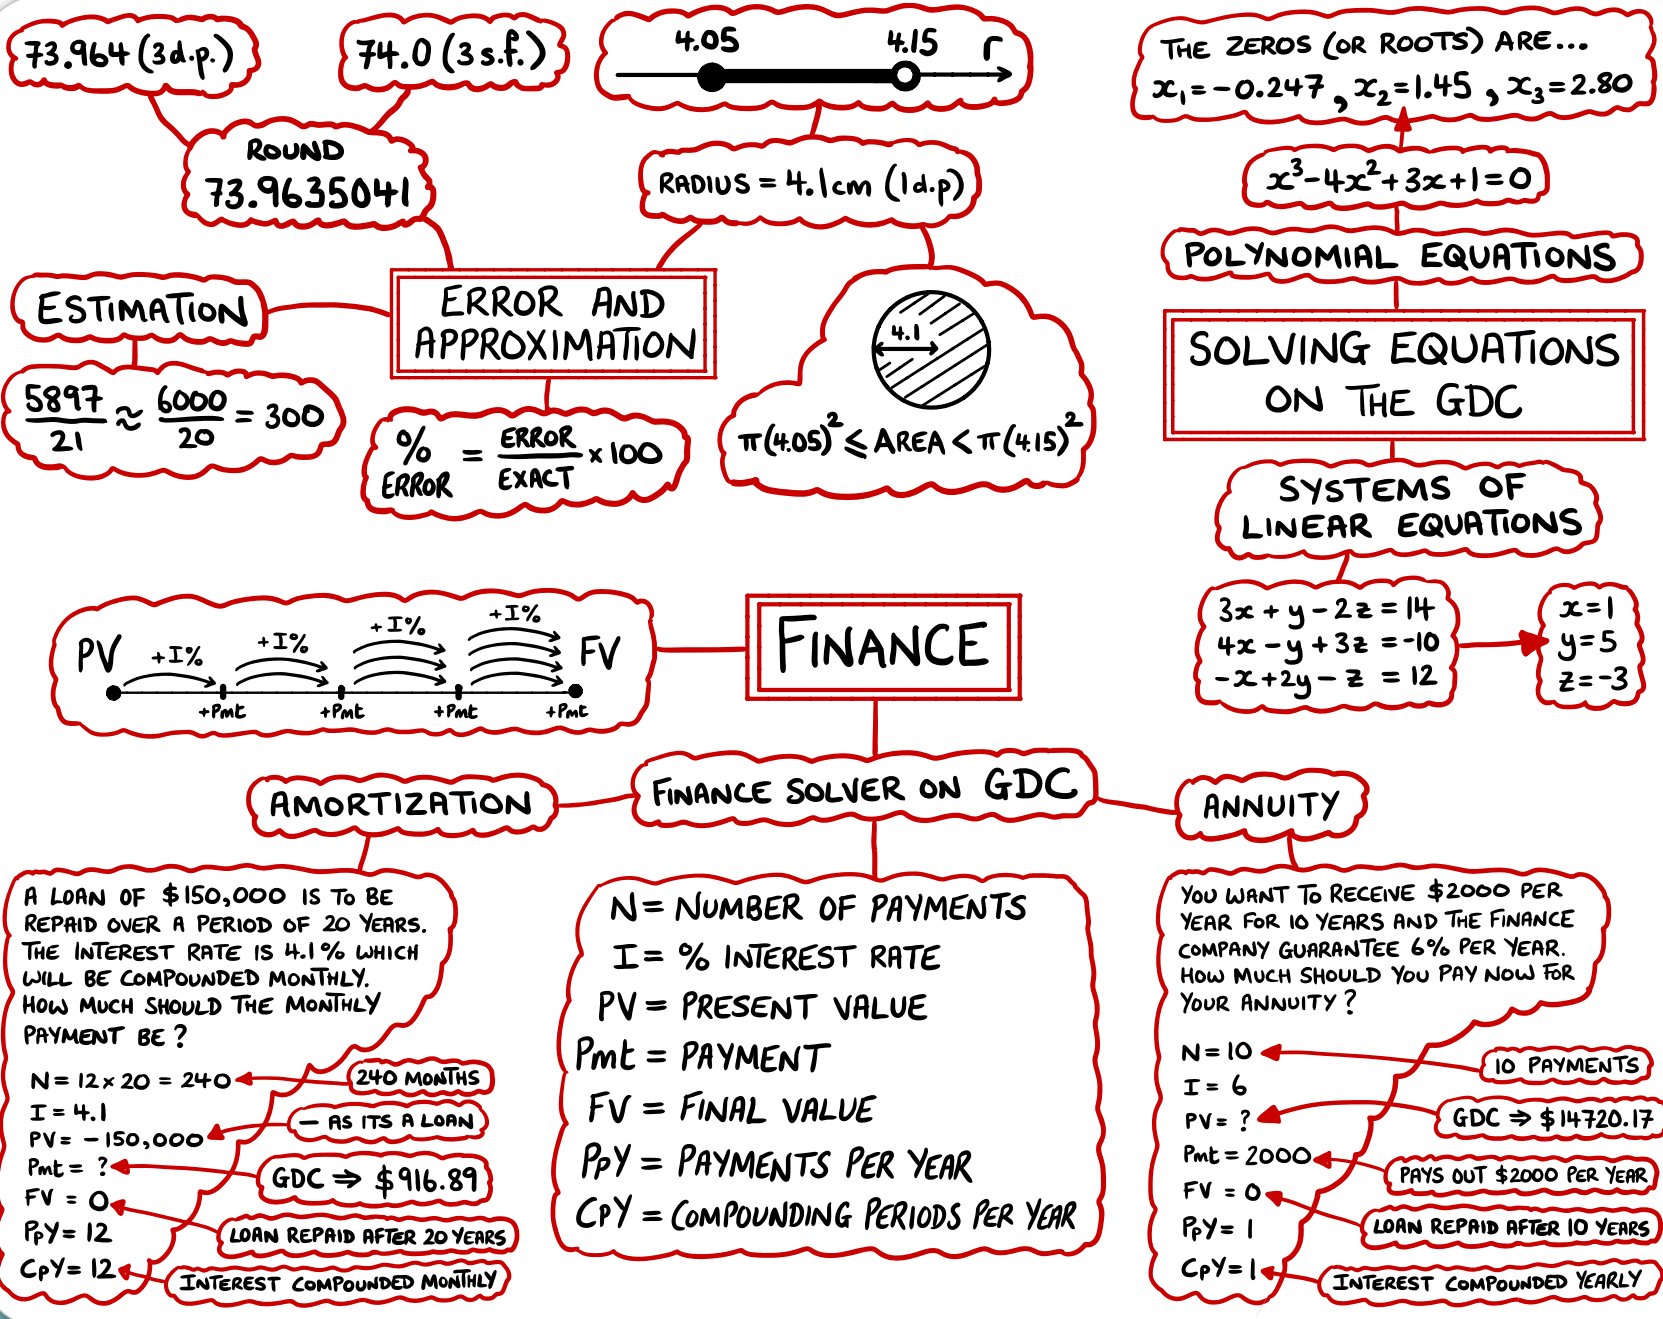 73.964 (3d.p.)
74.0 (3 s.f.)
ROUND
73.9635041
4.05 4.15 r
RADIUS = 4.1cm (1d.p)
ERROR AND
APPROXIMATION
ESTIMATION
5897/21 ≈ 6000/20 = 300
% ERROR = ERROR/EXACT × 100
4.1
π(4.05)² ≤ AREA < π(4.15)²
THE ZEROS (OR ROOTS) ARE...
x₁=-0.247, x₂=1.45, x₃=2.80
x³-4x²+3x+1=0
POLYNOMIAL EQUATIONS
SOLVING EQUATIONS
ON THE GDC
SYSTEMS OF
LINEAR EQUATIONS
3x + y - 2z = 14
4x - y + 3z = -10
-x+2y - z = 12
x=1
y=5
z=-3
FINANCE
PV +I% +I% +I% +I% FV
+Pmt +Pmt +Pmt +Pmt
FINANCE SOLVER ON GDC
AMORTIZATION
A LOAN OF $150,000 IS TO BE
REPAID OVER A PERIOD OF 20 YEARS.
THE INTEREST RATE IS 4.1% WHICH
WILL BE COMPOUNDED MONTHLY.
HOW MUCH SHOULD THE MONTHLY
PAYMENT BE?
N = 12 × 20 = 240
240 MONTHS
I = 4.1
PV = -150,000
- AS ITS A LOAN
Pmt = ?
GDC ⇒ $916.89
FV = 0
LOAN REPAID AFTER 20 YEARS
PpY = 12
CpY = 12
INTEREST COMPOUNDED MONTHLY
N = NUMBER OF PAYMENTS
I = % INTEREST RATE
PV = PRESENT VALUE
Pmt = PAYMENT
FV = FINAL VALUE
PpY = PAYMENTS PER YEAR
CpY = COMPOUNDING PERIODS PER YEAR
ANNUITY
YOU WANT TO RECEIVE $2000 PER
YEAR FOR 10 YEARS AND THE FINANCE
COMPANY GUARANTEE 6% PER YEAR.
HOW MUCH SHOULD YOU PAY NOW FOR
YOUR ANNUITY?
N = 10
10 PAYMENTS
I = 6
PV = ?
GDC ⇒ $14720.17
Pmt = 2000
PAYS OUT $2000 PER YEAR
FV = 0
LOAN REPAID AFTER 10 YEARS
PpY = 1
CpY = 1
INTEREST COMPOUNDED YEARLY